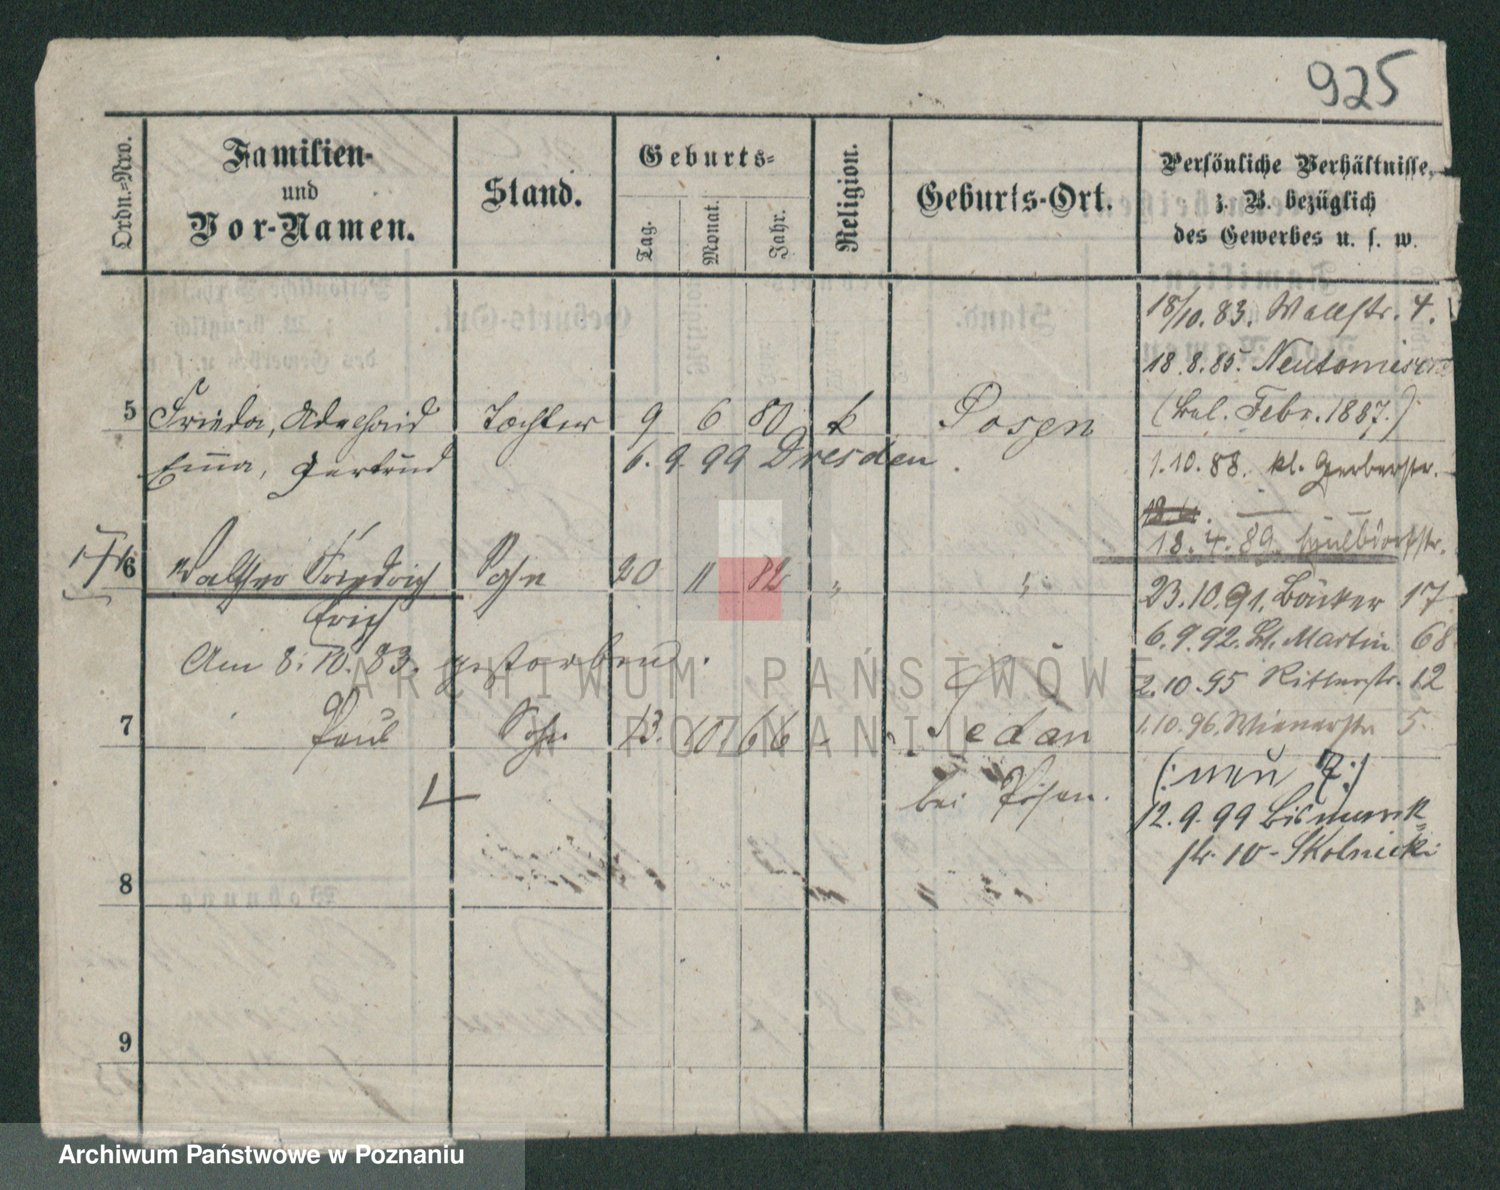 925
Ordn.-Nro.
Familien-
und
Vor-Namen.
Stand.
Geburts-
Tag.
Monat.
Jahr.
Religion.
Geburts-Ort.
Persönliche Verhältnisse,
z. B. bezüglich
des Gewerbes u. s. w.
18/10. 83. Wallstr. 4.
18. 8. 85. Neutomischel
5 Frieda, Adelhaid Tochter 9 6 80 k Posen
(Bel. Febr. 1887.)
Emma, Gertrud 6. 9. 99 Dresden.
1. 10. 88. kl. Gerberstr.
18. 4. 89.
6 Walther Friedrich Sohn 20 11 82 " "
Erich
23. 10. 91. Bäcker 17
Am 8. 10. 83. gestorben.
6. 9. 92. St. Martin 68
2. 10. 95 Ritterstr. 12
7 Paul Sohn 13. 10. 66 - Sedan
1. 10. 96. Wienerstr 5.
bei Posen.
(: neu 7 :)
12. 9. 99 Bismarck-
str. 10 - Skolnicki
8
9
ARCHIWUM PAŃSTWOWE
W POZNANIU
Archiwum Państwowe w Poznaniu